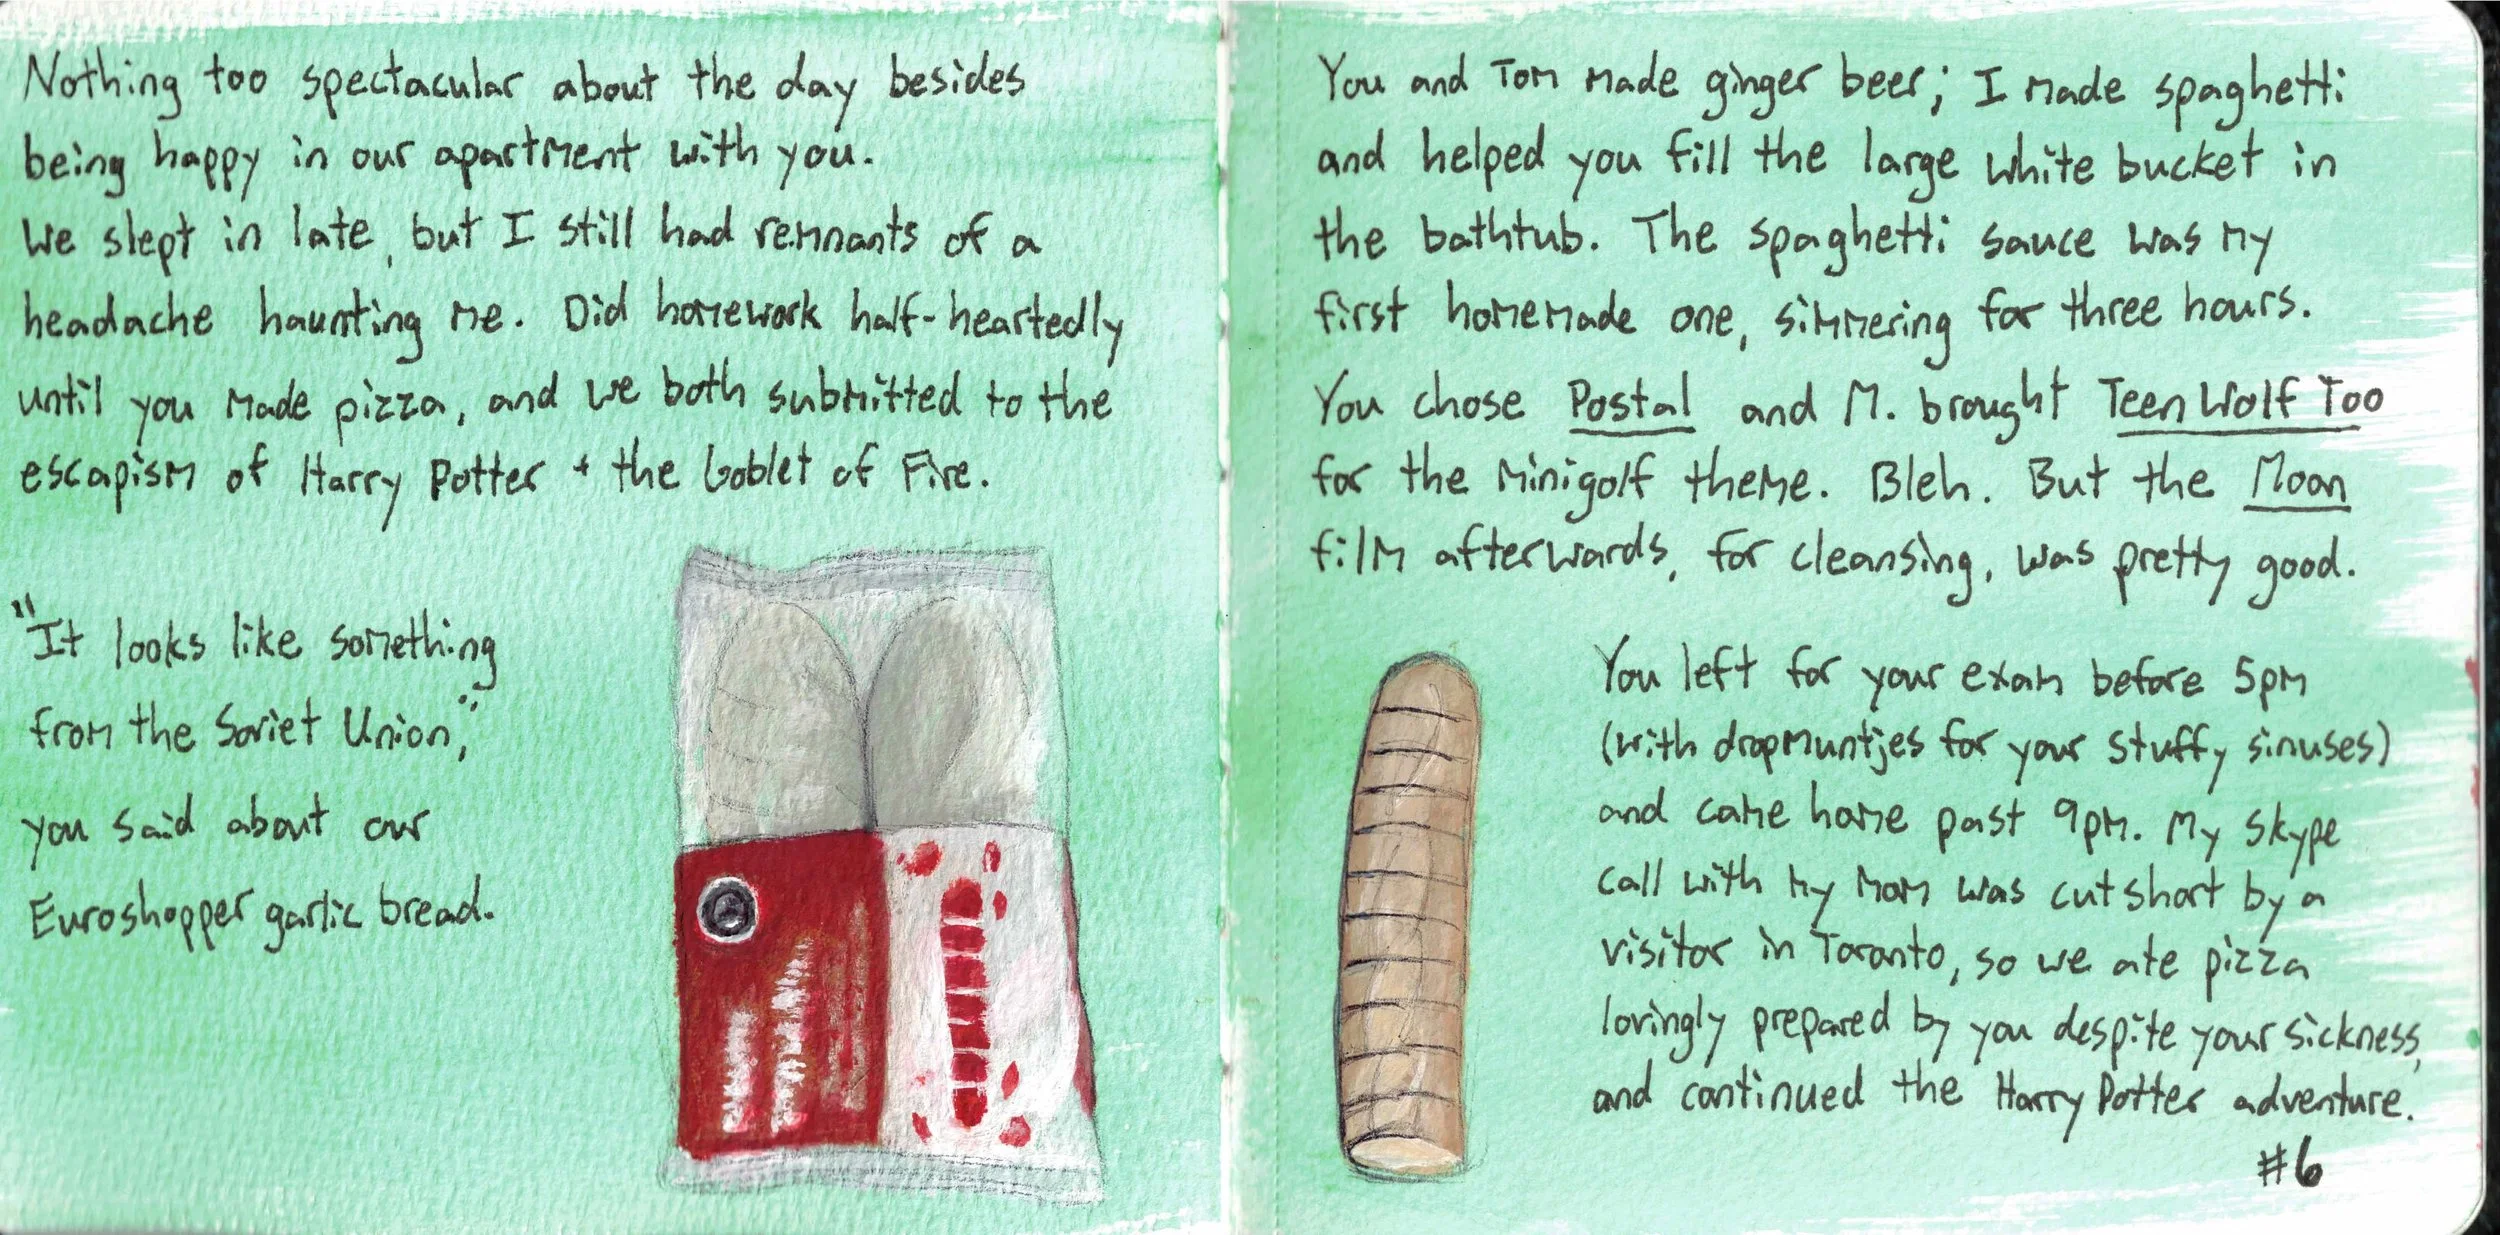 Nothing too spectacular about the day besides
being happy in our apartment with you.
We slept in late, but I still had remnants of a
headache haunting me. Did homework half-heartedly
until you made pizza, and we both submitted to the
escapism of Harry Potter + the Goblet of Fire.
"It looks like something
from the Soviet Union,"
you said about our
Euroshopper garlic bread.
You and Tom made ginger beer; I made spaghetti
and helped you fill the large white bucket in
the bathtub. The spaghetti sauce was my
first homemade one, simmering for three hours.
You chose Postal and M. brought Teen Wolf Too
for the minigolf theme. Bleh. But the Moon
film afterwards, for cleansing, was pretty good.
You left for your exam before 5pm
(with dropmuntjes for your stuffy sinuses)
and came home past 9pm. My skype
call with my mom was cut short by a
visitor in Toronto, so we ate pizza
lovingly prepared by you despite your sickness,
and continued the Harry Potter adventure.
#6